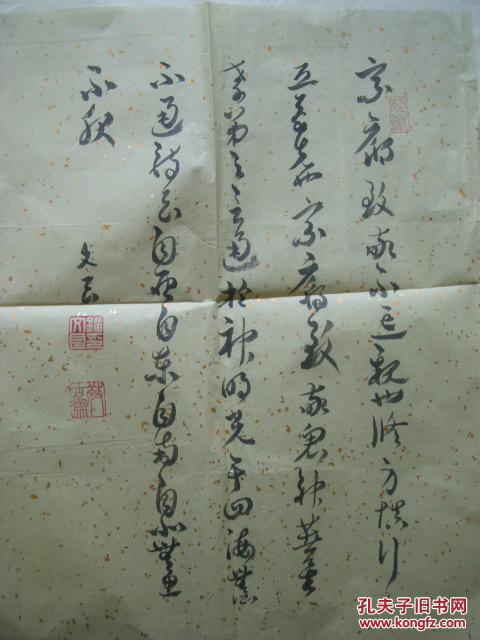 宗廟致敬不忘親也修身慎行
恐辱先也宗廟致敬鬼神著矣
孝弟之至通於神明光于四海無所
不通詩云自西自東自南自北無思
不服
孔夫子旧书网
www.kongfz.com